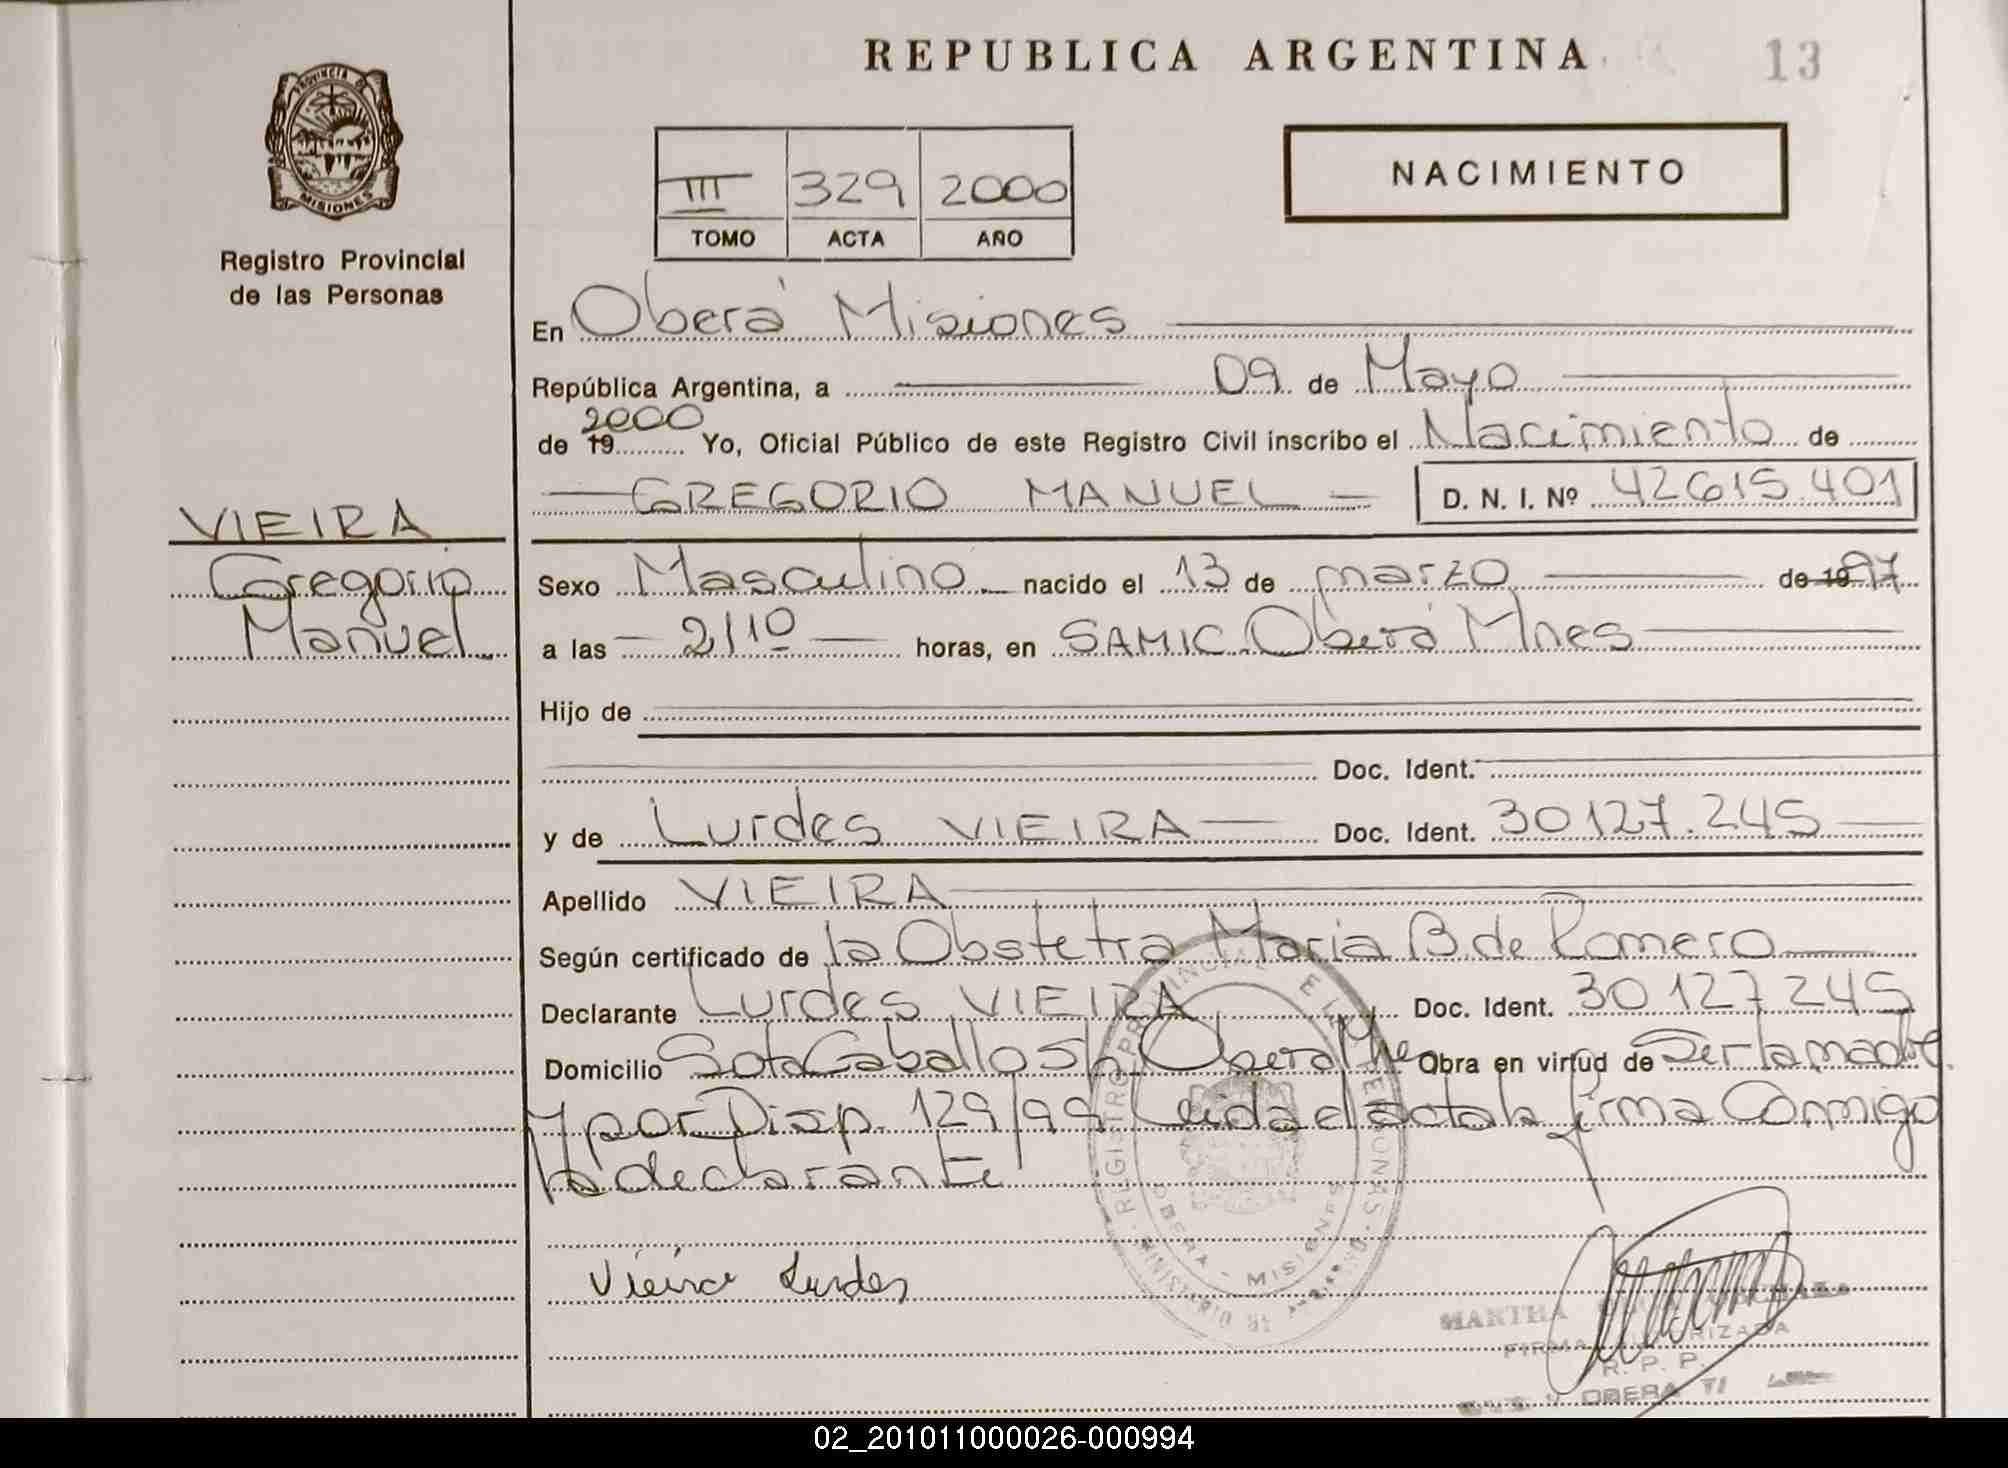 REPUBLICA ARGENTINA
13
PROVINCIA DE
MISIONES
Registro Provincial
de las Personas
III 329 2000
TOMO ACTA AÑO
NACIMIENTO
En Oberá Misiones
República Argentina, a 09 de Mayo
2000
de 19 Yo, Oficial Público de este Registro Civil inscribo el Nacimiento de
GREGORIO MANUEL D. N. I. Nº 42615.401
VIEIRA
Gregorio
Manuel
Sexo Masculino nacido el 13 de marzo de 1997
a las 21 10 horas, en SAMIC Oberá Mnes
Hijo de
Doc. Ident.
y de Lurdes VIEIRA Doc. Ident. 30127.245
Apellido VIEIRA
Según certificado de la Obstetra Maria B. de Romero
Declarante Lurdes VIEIRA Doc. Ident. 30127245
Domicilio Sota Caballo Sh Oberá Mnes Obra en virtud de Ser la madre
y por Disp. 129/99 Leida el acta la firma Conmigo
la declarante
REGISTRO PROVINCIAL DE LAS PERSONAS
OBERA - MISIONES
Vieira Lurdes
MARTHA
FIRMA AUTORIZADA
R. P. P.
OBERA
02_201011000026-000994